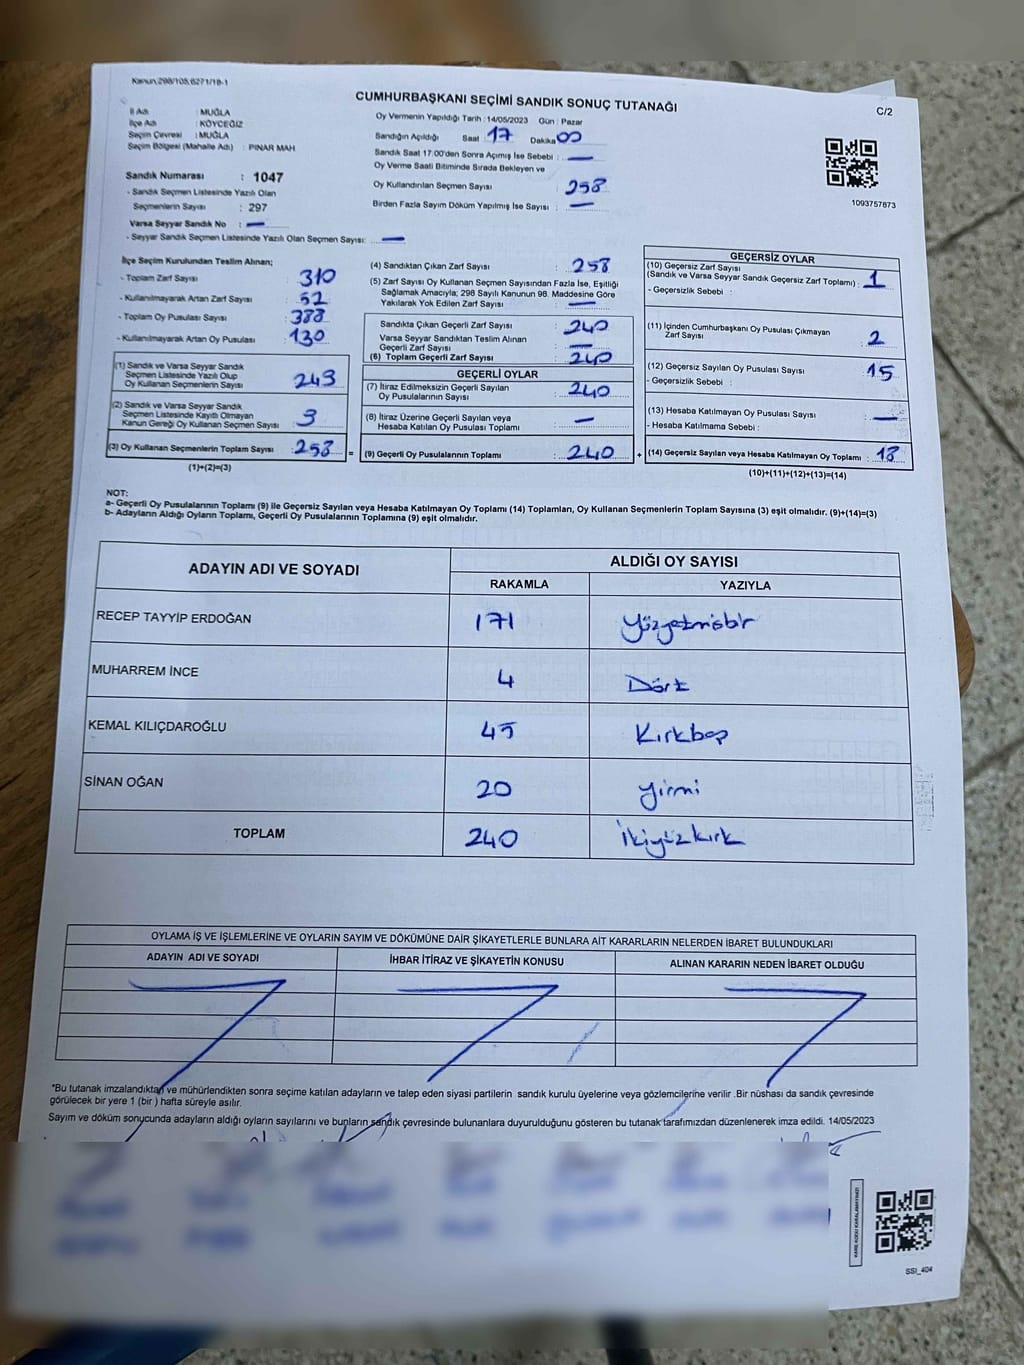 Kanun,298/105,6271/18-1
CUMHURBAŞKANI SEÇİMİ SANDIK SONUÇ TUTANAĞI
C/2
İl Adı : MUĞLA
İlçe Adı : KÖYCEĞİZ
Seçim Çevresi : MUĞLA
Seçim Bölgesi (Mahalle Adı) : PINAR MAH
Sandık Numarası : 1047
- Sandık Seçmen Listesinde Yazılı Olan
Seçmenlerin Sayısı : 297
Varsa Seyyar Sandık No : —
- Seyyar Sandık Seçmen Listesinde Yazılı Olan Seçmen Sayısı: —
Oy Vermenin Yapıldığı Tarih : 14/05/2023 Gün : Pazar
Sandığın Açıldığı Saat 17 Dakika 00
Sandık Saat 17:00'den Sonra Açımış İse Sebebi : —
Oy Verme Saati Bitiminde Sırada Bekleyen ve
Oy Kullandırılan Seçmen Sayısı : 258
Birden Fazla Sayım Döküm Yapılmış İse Sayısı : —
1093757673
İlçe Seçim Kurulundan Teslim Alınan;
- Toplam Zarf Sayısı : 310
- Kullanılmayarak Artan Zarf Sayısı : 52
- Toplam Oy Pusulası Sayısı : 388
- Kullanılmayarak Artan Oy Pusulası : 130
(1) Sandık ve Varsa Seyyar Sandık
Seçmen Listesinde Yazılı Olup
Oy Kullanan Seçmenlerin Sayısı : 249
(2) Sandık ve Varsa Seyyar Sandık
Seçmen Listesinde Kayıtlı Olmayan
Kanun Gereği Oy Kullanan Seçmen Sayısı :
(3) Oy Kullanan Seçmenlerin Toplam Sayısı : 258 =
(1)+(2)=(3)
(4) Sandıktan Çıkan Zarf Sayısı : 258
(5) Zarf Sayısı Oy Kullanan Seçmen Sayısından Fazla İse, Eşitliği
Sağlamak Amacıyla; 298 Sayılı Kanunun 98. Maddesine Göre
Yakılarak Yok Edilen Zarf Sayısı : —
Sandıkta Çıkan Geçerli Zarf Sayısı : 240
Varsa Seyyar Sandıktan Teslim Alınan
Geçerli Zarf Sayısı : —
(6) Toplam Geçerli Zarf Sayısı : 240
GEÇERLİ OYLAR
(7) İtiraz Edilmeksizin Geçerli Sayılan
Oy Pusulalarının Sayısı : 240
(8) İtiraz Üzerine Geçerli Sayılan veya
Hesaba Katılan Oy Pusulası Toplamı : —
(9) Geçerli Oy Pusulalarının Toplamı : 240 +
GEÇERSİZ OYLAR
(10) Geçersiz Zarf Sayısı
(Sandık ve Varsa Seyyar Sandık Geçersiz Zarf Toplamı) : 1
- Geçersizlik Sebebi :
(11) İçinden Cumhurbaşkanı Oy Pusulası Çıkmayan
Zarf Sayısı : 2
(12) Geçersiz Sayılan Oy Pusulası Sayısı : 15
- Geçersizlik Sebebi :
(13) Hesaba Katılmayan Oy Pusulası Sayısı : —
- Hesaba Katılmama Sebebi :
(14) Geçersiz Sayılan veya Hesaba Katılmayan Oy Toplamı : 18
(10)+(11)+(12)+(13)=(14)
NOT:
a- Geçerli Oy Pusulalarının Toplamı (9) ile Geçersiz Sayılan veya Hesaba Katılmayan Oy Toplamı (14) Toplamları, Oy Kullanan Seçmenlerin Toplam Sayısına (3) eşit olmalıdır. (9)+(14)=(3)
b- Adayların Aldığı Oyların Toplamı, Geçerli Oy Pusulalarının Toplamına (9) eşit olmalıdır.
ADAYIN ADI VE SOYADI
ALDIĞI OY SAYISI
RAKAMLA YAZIYLA
RECEP TAYYİP ERDOĞAN 171 Yüzyetmişbir
MUHARREM İNCE 4 Dört
KEMAL KILIÇDAROĞLU 45 Kırkbeş
SİNAN OĞAN 20 yirmi
TOPLAM 240 İkiyüzkırk
OYLAMA İŞ VE İŞLEMLERİNE VE OYLARIN SAYIM VE DÖKÜMÜNE DAİR ŞİKAYETLERLE BUNLARA AİT KARARLARIN NELERDEN İBARET BULUNDUKLARI
ADAYIN ADI VE SOYADI İHBAR İTİRAZ VE ŞİKAYETİN KONUSU ALINAN KARARIN NEDEN İBARET OLDUĞU
*Bu tutanak imzalandıktan ve mühürlendikten sonra seçime katılan adayların ve talep eden siyasi partilerin sandık kurulu üyelerine veya gözlemcilerine verilir .Bir nüshası da sandık çevresinde
görülecek bir yere 1 (bir ) hafta süreyle asılır.
Sayım ve döküm sonucunda adayların aldığı oyların sayılarını ve bunların sandık çevresinde bulunanlara duyurulduğunu gösteren bu tutanak tarafımızdan düzenlenerek imza edildi. 14/05/2023
KARE KODU KARALAMAYINIZ!
SSI_404